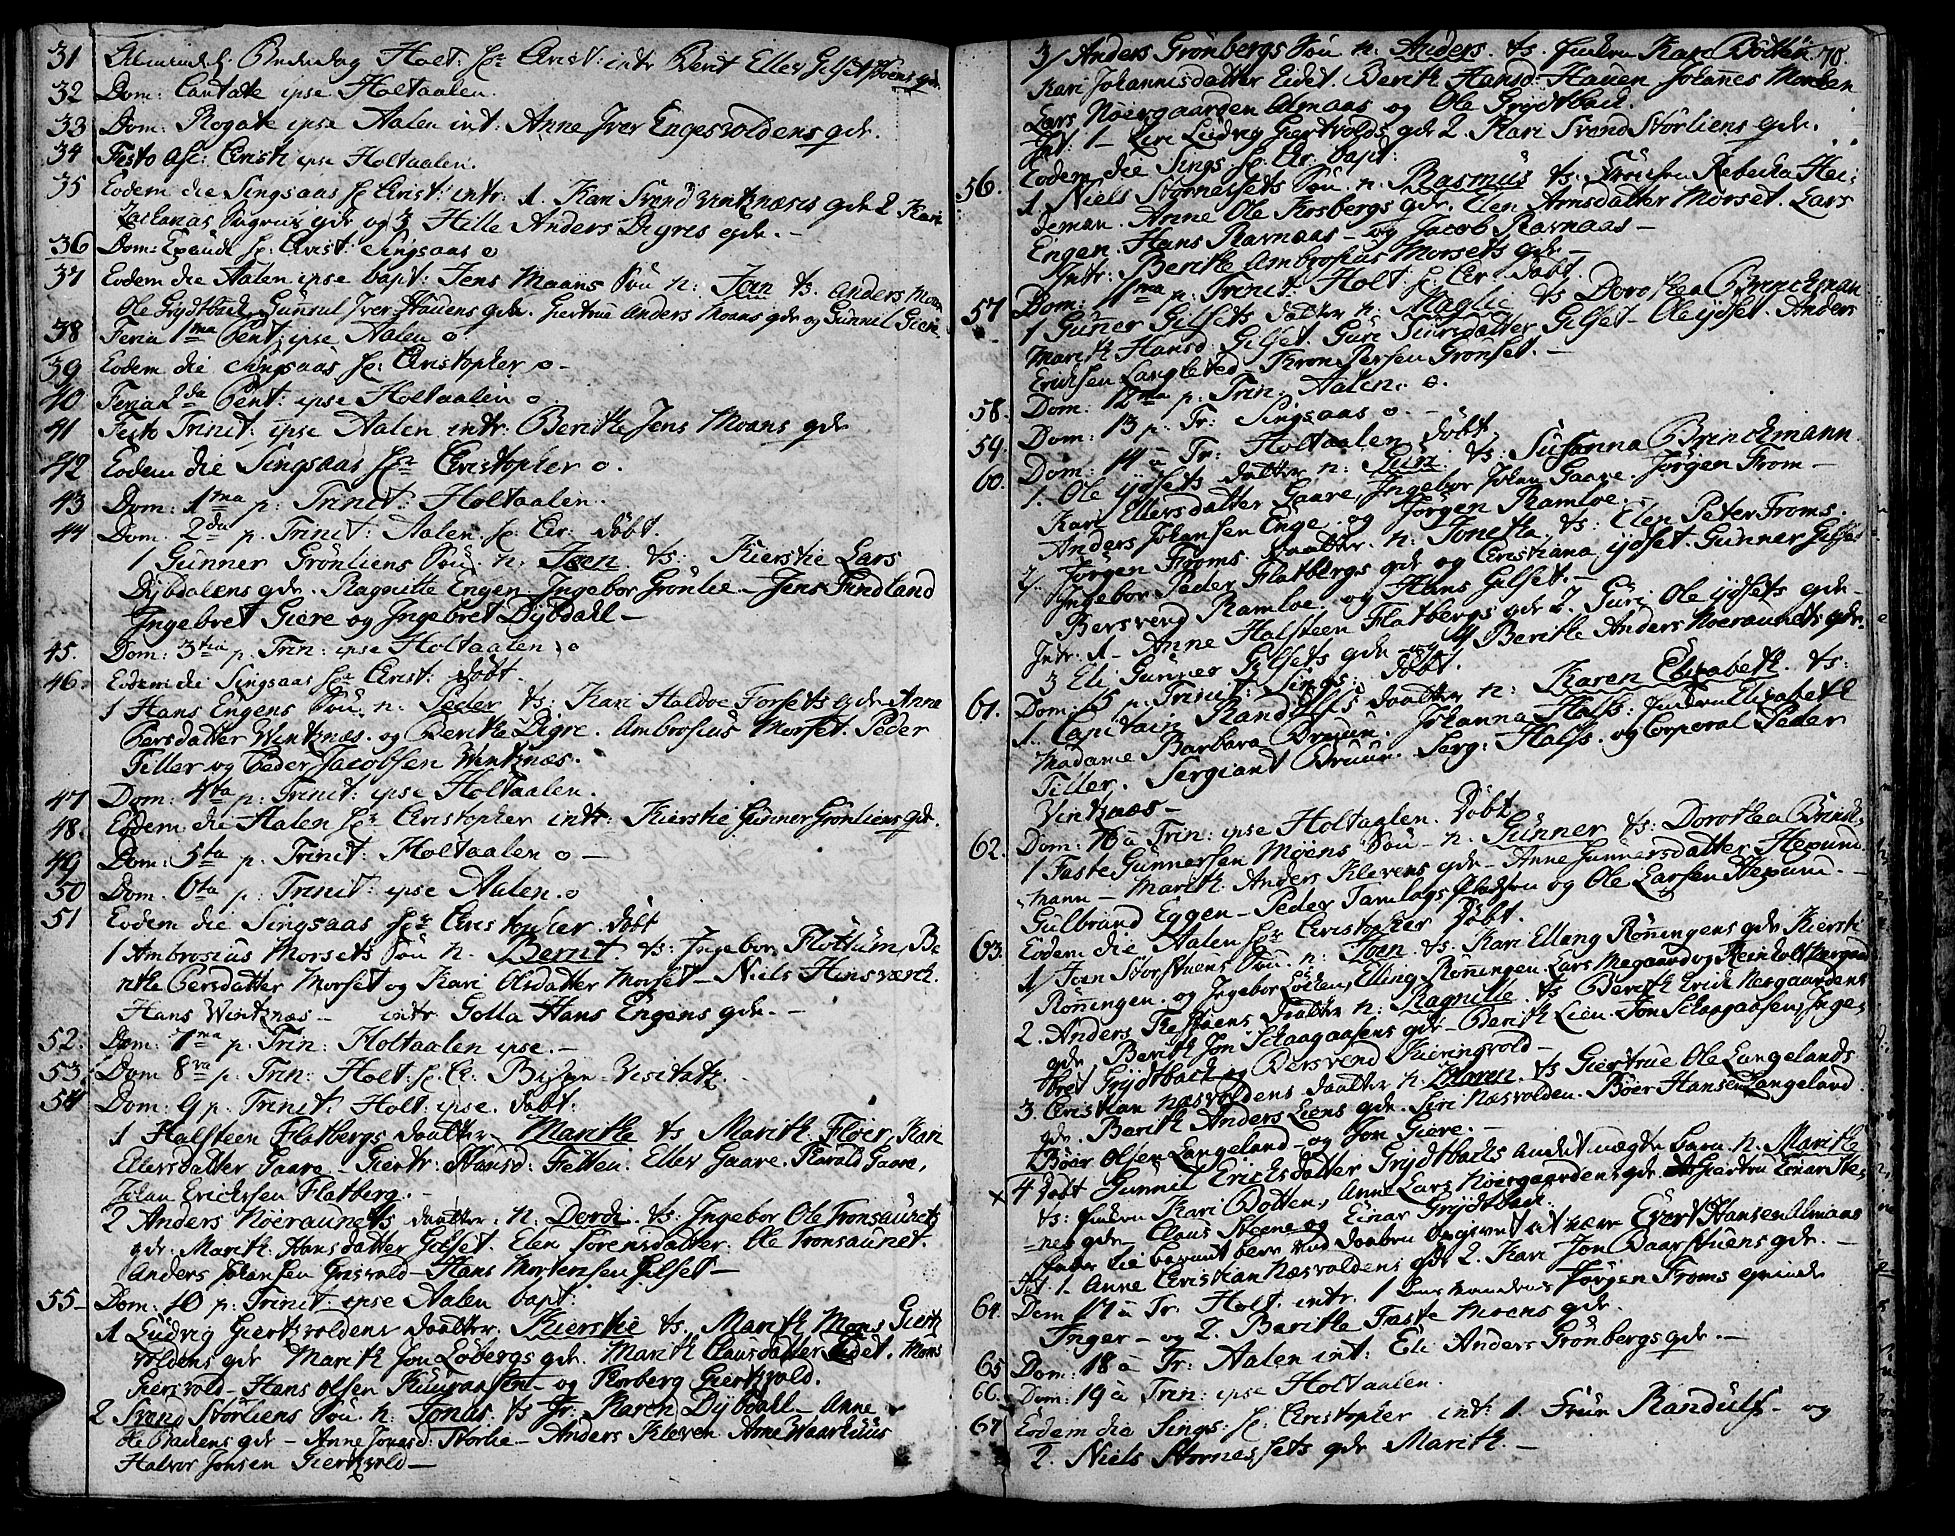 31 Bededag Holt: hr Christ: intr Berit Eller Gilset gde.
32 Dom: Cantate ipse Holtaalen.
33 Dom: Rogate ipse Aalen int: Anne Iver Engesvoldens gde.
34 Festo Asc: Christi ipse Holtaalen.
35 Eodem die Singsaas hr Christ: intr: 1. Kari Svend Winsnæsis gde 2 Kari
Zacharias gde og 3 Hille Anders Digres gde. –
36 Dom: Exaudi hr. Christ: Singsaas o
37 Eodem die Aalen ipse bapt: Jens Moans Søn n: Jon ts. Anders Moan
Ole Grydtback, Gunnul Iver Hauens gde. Giertrue Anders Moans gde og Gunnil Giere
38 Feria 1ma Pent: ipse Aalen o.
39 Eodem die Singsaas hr: Christopher o –
40 Feria 2da Pent: ipse Holtaalen o.
41 Festo Trinit: ipse Aalen intr: Berithe Jens Moans gde
42 Eodem die Singsaas hr Christopher o.
43 Dom: 1ma p: Trinit: Holtaalen.
44 Dom: 2da p. Trinit: Aalen hr Chr: døbt.
1 Gunner Grönliens Søn. n. Joen ts: Kierstie Lars
Dÿbdalens gde. Ragnille Engen Ingebor Grönlie – Jens Findland
Ingebret Giere og Ingebret Dÿbdahl –
45. Dom: 3tia p. Trin: ipse Holtaalen o
46. Eodem die Singsaas hr Christ: døbt.
1 Hans Engens Søn n: Peder ts: Kari Haldoe Forsets gde Anne
Persdatter Winsnæs. og Berithe Digre. Ambrosius Morset. Peder
Tiller og Peder Jacobsen Winsnæs.
47 Dom: 4ta p: Trinit: ipse Holtaalen.
48. Eodem die Aalen hr Christopher intr: Kierstie Gunner Grönliens gde.
49 Dom: 5ta p. Trinit: Holtaalen o –
50 Dom. 6ta p: Trinit: ipse Aalen. o
51 Eodem die Singsaas hr Christopher. døbt
1 Ambrosius Morsets Søn n. Bernt. ts: Ingebor Flottum, Be
rithe Persdatter Morset og Kari Olsdatter Morset – Niels Hinsværck.
Hans Winsnæs – intr Golla Hans Engens gde. –
52. Dom: 7ma p. Trin: Holtaalen ipse. –
53 Dom 8va p. Trin: Holt: hr. Chr: Bisp Visitatz.
54 Dom: 9 p. Trinit: Holt: ipse. døbt:
1 Halsteen Flatbergs daatter. Marithe ts Marith Fløer, Kari
Ellersdatter Gaare – Giertr: Hansd: Fetten. Eller Gaare. Harald Gaare,
Johan Ericksen Flatberg. –
2 Anders Nöeraunets daatter: n: Dordi. ts: Ingebor Ole Tronsaunets
gde. Marith Hansdatter Gilset. Elen Sörensdatter: Ole Tronsaunet.
Anders Johansen Grisvold – Hans Mortensen Gilset –
55 – Dom: 10 p: Trinit: ipse Aalen bapt:
1 Ludvig Giertsvoldens daatter. Kierstie ts. Marith Mons Giert
voldens gde Marith Jon Löbergs gde. Marith Clausdatter Eidet. Mons
Giersvold – Hans Olsen Kuuraasen – og Torberg Giertsvold.
2 Svend Störliens Søn n: Jonas. ts Jr: Karen Dÿbdahl – Anne
Ole Backens gde – Anne Jonsd: Storlie – Anders Kleven Arne Waarhuus
Halvor Jonsen Giertsvold –
70.
3/ Anders Grönbergs Søn n: Anders. ts. Jmfrue Kari Dotten
Kari Johannisdatter Eidet. Berith Hansd: Hauen Johanes Morken
Lars Nöergaarden Almaas og Ole Grÿdtback.
Int: 1 – Siri Ludvig Giertvolds gde 2. Kari Svend Störliens gde.
56. Eodem die Sings: hr. Chr. bapt:
1 Niels Störnessets Søn n. Rasmus ts: Rebecka Hei:
deman. Anne Ole Kosbergs gde. Elen Arnsdatter Morset. Lars
Engen. Hans Ravnaas – og Jacob Ravnaas –
Intr: Berithe Ambrosius Morsets gde –
57 Dom: 11ma p. Trinit: Holt hr Chr døbt.
1 Gunner Gilsets daatter n: Magli ts Dorothea Brinckman
Marith Hansd: Gilset. Guri Siursdatter Gilset – Ole ÿdset. Anders
Ericksen Langleted – Tron Persen Grönset. –
58. Dom: 12ma p. Trin: Aalen. o.
59. Dom: 13 p. Tr: Singsaas o. –
60. Dom: 14 a Tr: Holtaalen døbt.
1. Ole ÿdsets daatter n: Guri. ts: Susanna Brinckmann
Kari Ellersdatter Gaare, Ingebor Johan Gaare. Jörgen From –
Anders Johansen Enge. og Jörgen Ramloe. –
2/. Jörgen Froms daatter. n: Jonetha, ts: Elen Peter Froms.
Ingebor Peder Flatbergs gde og Christiana ÿdset. Gunner Gilset
Bersvend Ramloe, og Hans Gilset. –
Intr: 1 – Anne Halsteen Flatbergs gde 2. Guri Ole ÿdsets gde –
3 Eli Gunner Gilsets gde – og 4 Berithe Anders Nöeraunets gde.
61. Dom: 15 p. Trinit: Sings: døbt.
1. Capitain Randulfs daatter n: Karen Elisabeth ts:
Madame Barbara Bruun. Johanna Hals. Jmfrue Elisabeth
Tiller. Sergiant Bruun. Serg: Hals. og Corporal Peder
Winsnæs –
62. Dom: 16 a Trin: ipse Holtaalen. døbt
1 Faste Gunnersen Möens Søn – n. Gunner ts: Dorothea Brinck:
mann – Marith Anders Klevens gde – Anne Gunnersdatter Hexum.
Gulbrand Eggen – Peder Tamlagspladsen og Ole Larsen Hexum. –
63. Eodem die Aalen hr Christopher døbt.
1/ Joen Storstuens Søn. n: Joen ts: Kari Elling Rönningens gde Kiersti
Rönningen. og Ingebor Löcken, Elling Rönningen. Lars Megaard og Reinholt
2. Anders daatter n: Ragnille ts Berith Erick Nesgaardens
gde Berith Jon Schaagaasens gde – Berith Lien – Jon Schaagaasen, Inge:
bret Grÿdtback og Bersvend Kieringvold –
3. Christian Næsvoldens daatter n. Maren. ts Giertrue Ole Langelands
gde. Berith Anders Liens gde. Siri Næsvolden. Böer Hansen Langeland.
Böer Olsen Langeland – og Jon Giere. –
x 4 døbt Gunnil Ericksdatter Grÿdtbacks andet uægte barn n. Marithe
ts: Jmfrue Kari Dotten, Anne Lars Nöergaardens gde Giertru Einar Ste:
nes gde – Claus Steene og Einar Grÿdtback.
Fader til barnet blev ved daaben angivet at være Evert Hansen Almaas
Int 1. Anne Christian Næsvoldens gde 2. Kari Jon Baarstuens gde. –
64. Dom 17 a Tr: Holt: intr. 1 Lensmandens Jörgen Froms qvinde
Inger – og 2. Berithe Faste Moens gde.
65 Dom: 18 a Tr: Aalen int: Eli Anders Grönbergs gde. –
66. Dom: 19 a Trin: ipse Holtaalen.
67 Eodem die Sings: hr: Christopher int: 1. Frue Randulf – og
2. Niels Stornessets gde Marith. –